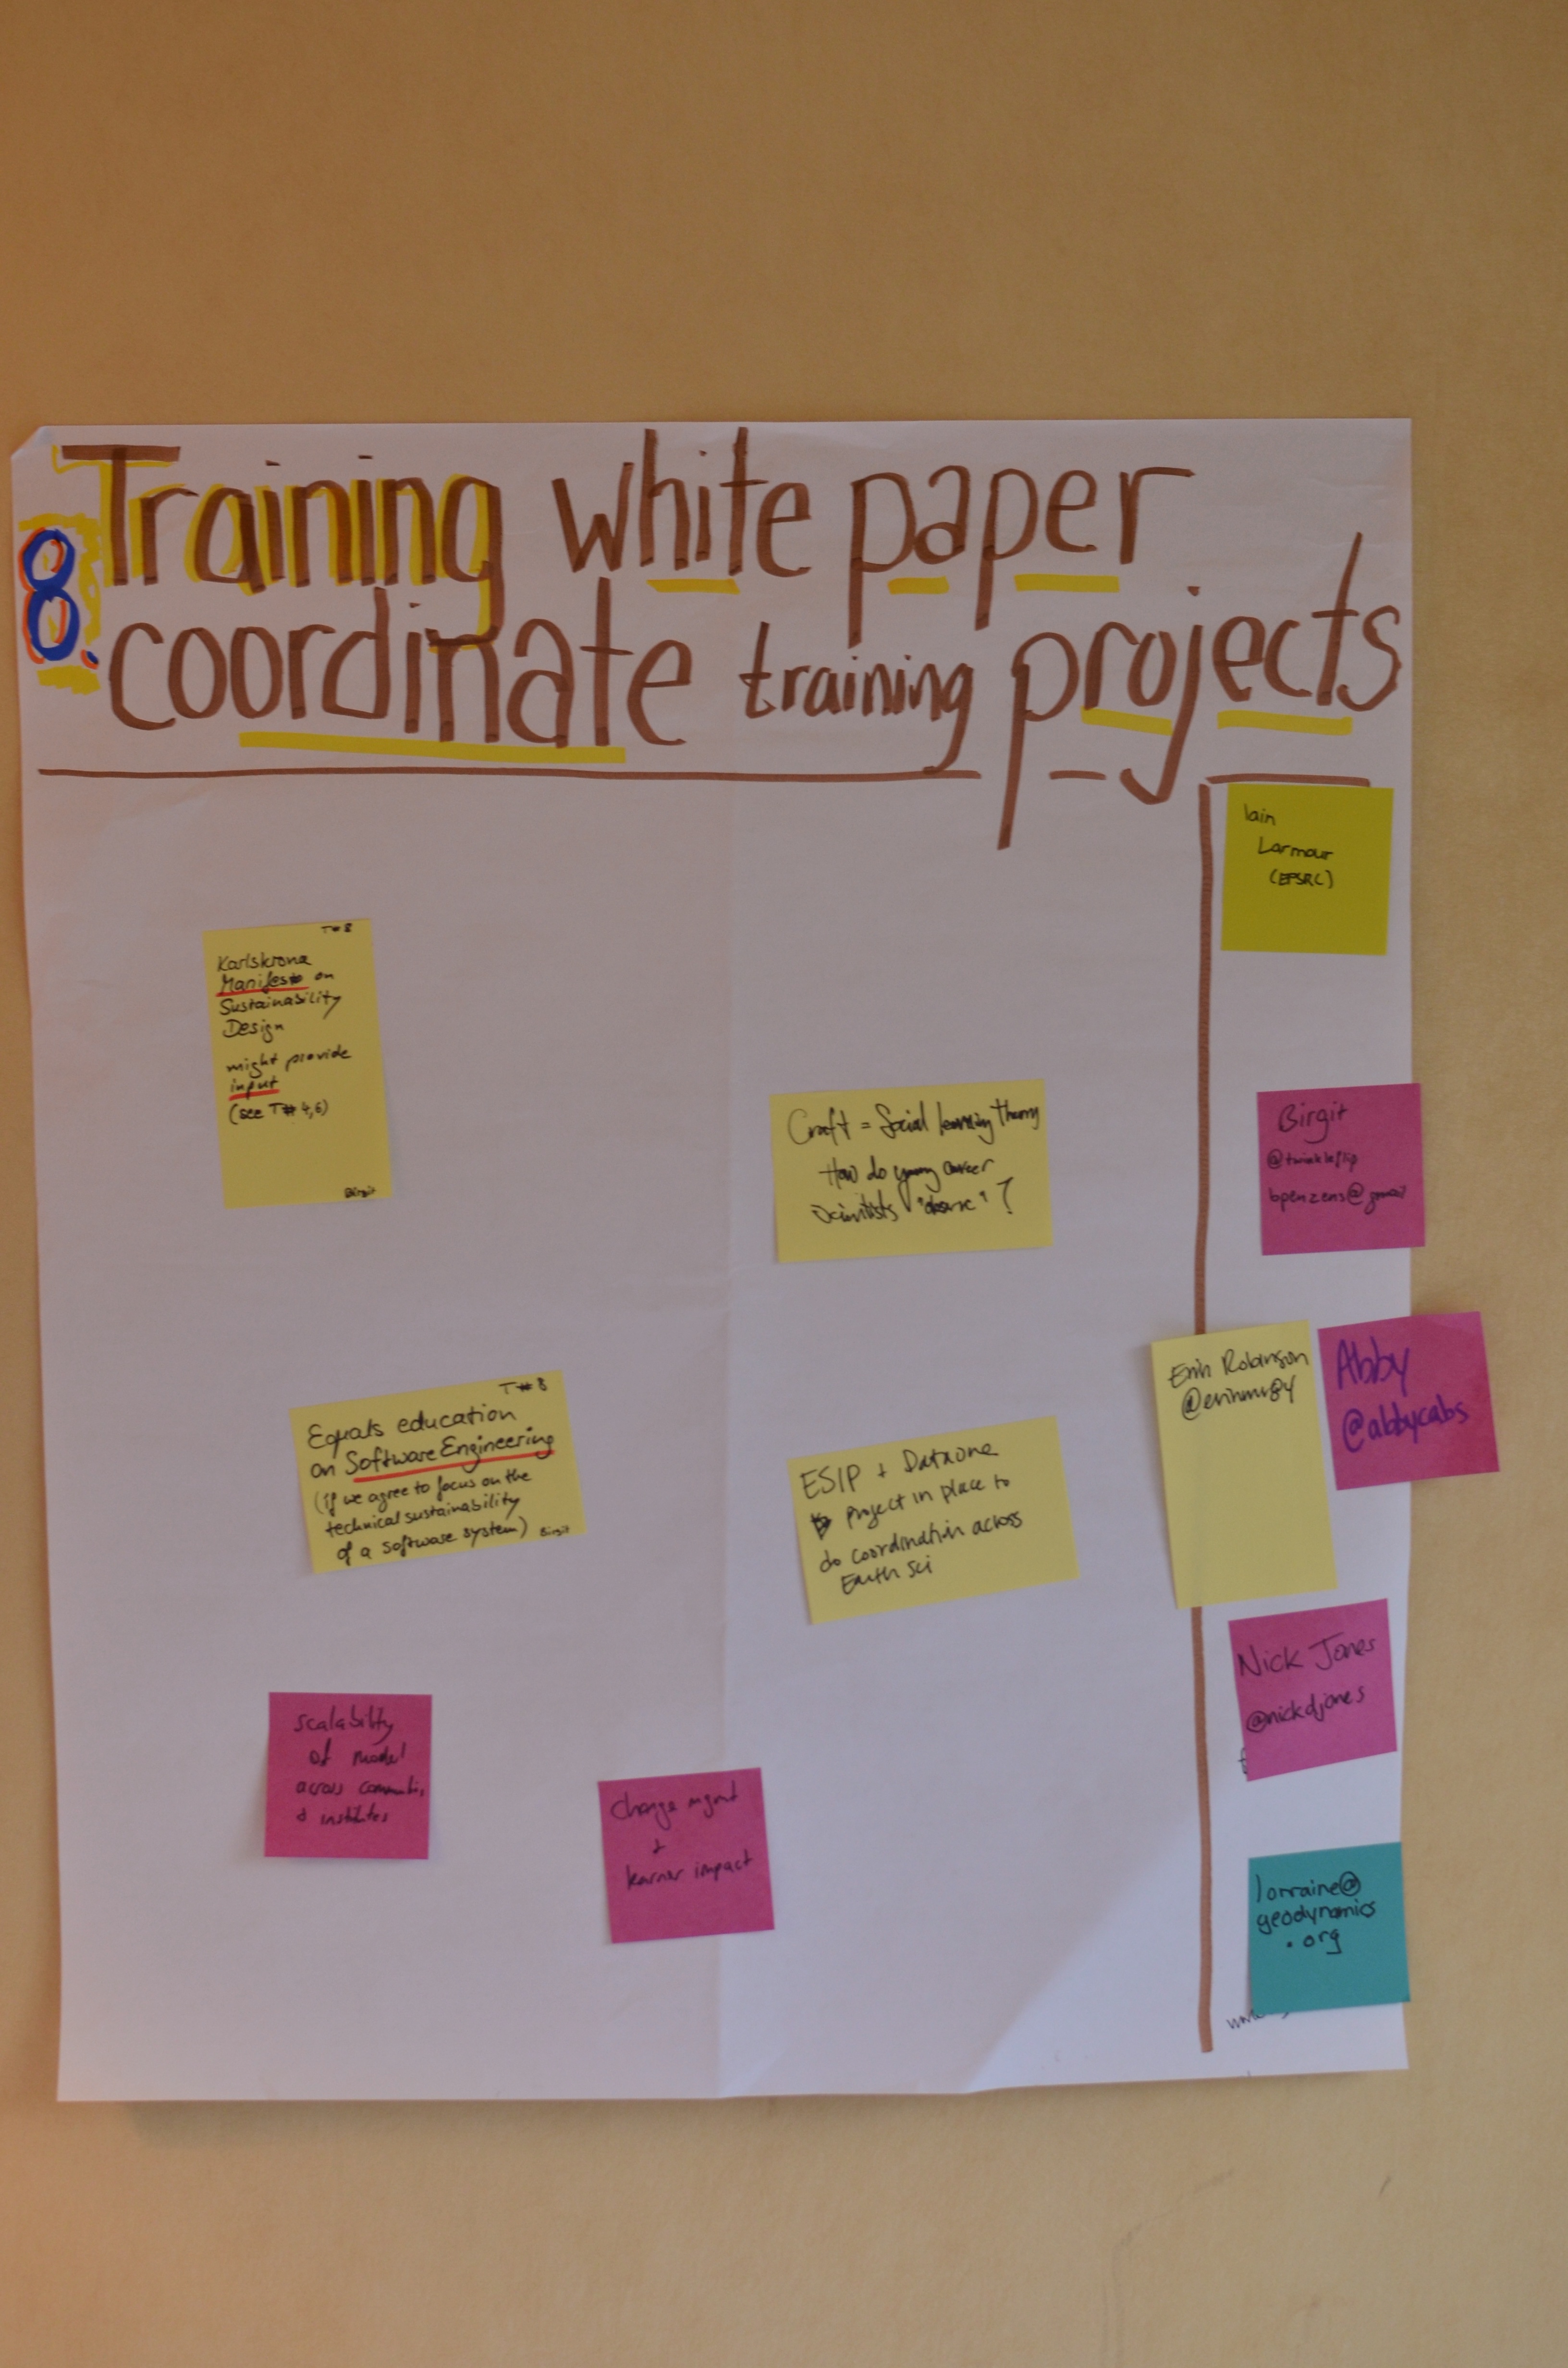 8. Training white paper
coordinate training projects
T#8
Karlskrona
Manifesto on
Sustainability
Design
might provide
input
(see T# 4,6)
Birgit
Craft = Social learning theory
How do young career
scientists "observe"?
T#8
Equals education
on Software Engineering
(if we agree to focus on the
technical sustainability
of a software system) Birgit
ESIP + Dataone
project in place to
do coordination across
Earth Sci
scalability
of model
across communities
& institutes
change mgmt
+
learner impact
Iain
Larmour
(EPSRC)
Birgit
@twinkleflip
bpenzens@gmail
Erin Robinson
@erinmr84
Abby
@abbycabs
Nick Jones
@nickdjones
lorraine@
geodynamics
.org